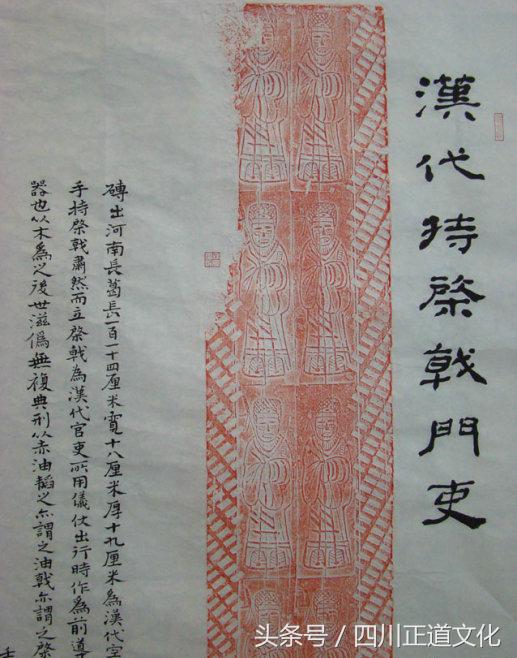 漢代持棨戟門吏
磚出河南長葛長一百十四厘米寬十八厘米厚十九厘米為漢代
手持棨戟肅然而立棨戟為漢代官吏所用儀仗出行時作為前導
器也以木為之後世滋偽無複典刑以赤油韜之亦謂之油戟亦謂之棨
头条号 / 四川正道文化